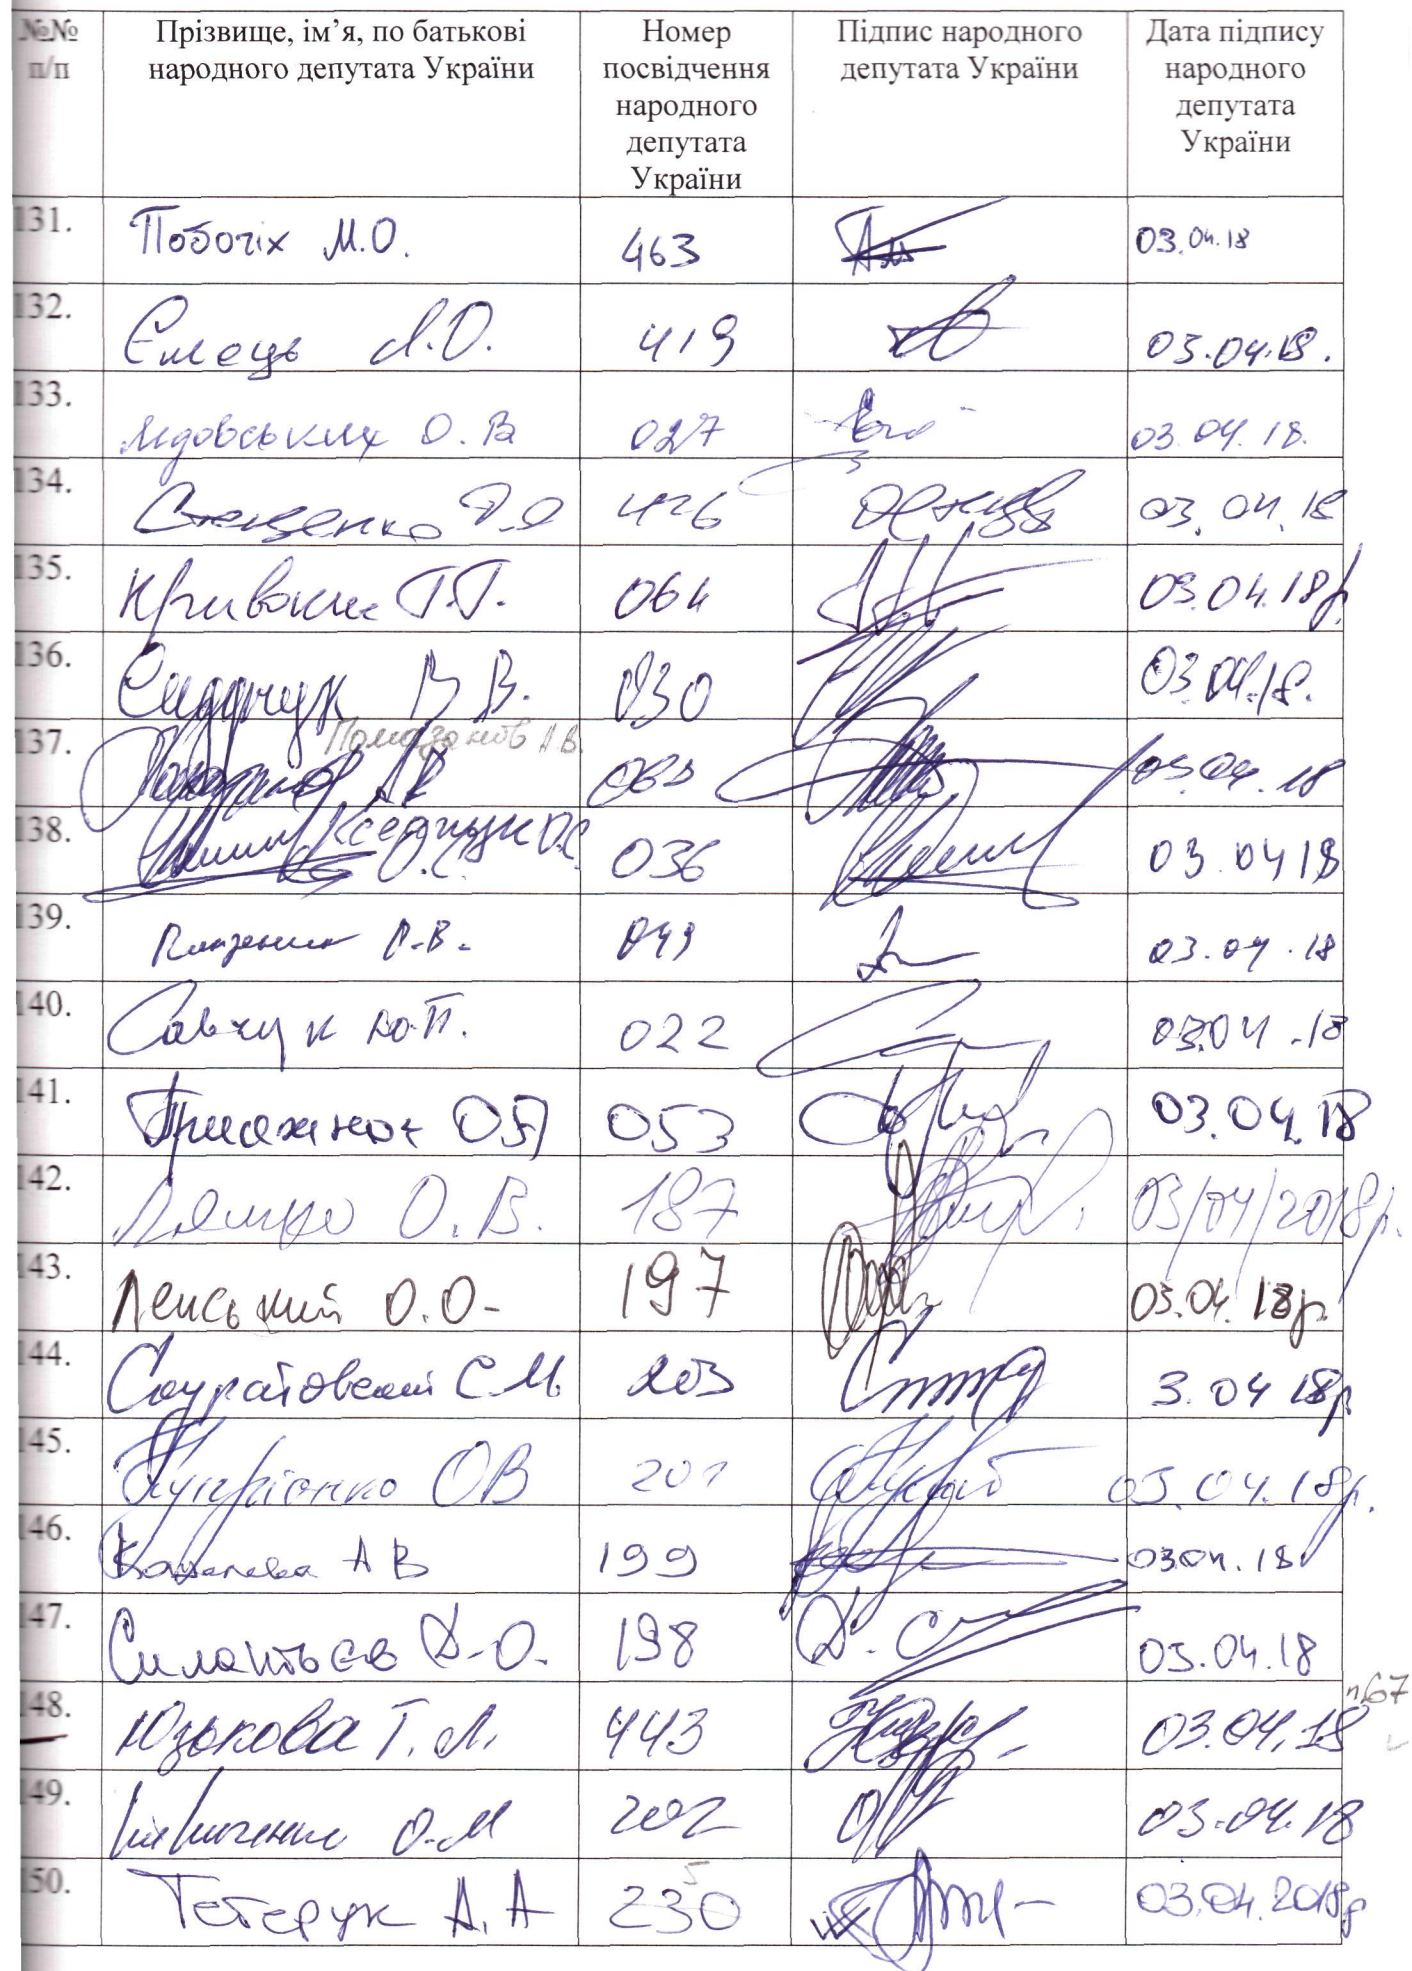 №№ п/п Прізвище, ім’я, по батькові народного депутата України Номер посвідчення народного депутата України Підпис народного депутата України Дата підпису народного депутата України
131. Побочіх М.О. 463 03.04.18
132. Ємець Л.О. 419 03.04.18.
133. Мдовських О.В 027 03.04.18.
134. Стеценко Д.Я 426 03.04.18
135. Кривошея Г.Г. 064 03.04.18р
136. Сидорчук В.В. 030 03.04.18.
137. Помазанов А.В. 03.04.18
138. Кседжук О.С. 036 03.04 18
139. Пинзеник П.В. 049 03.04.18
140. Савчук Ю.П. 022 03.04.18
141. Присяжнюк О.А 053 03.04.18
142. Ляшко О.В. 187 03/04/2018р.
143. Ленський О.О. 197 03.04.18р.
144. Скуратовський С.М. 203 3.04 18р
145. Купрієнко ОВ 201 03.04.18р.
146. Кошелєва А В 199 03.04.18
147. Силантьєв Д.О. 198 03.04.18
148. Юзькова Т.Л. 443 03.04.18 п.67
149. О.М 202 03.04.18
150. Тетерук А.А 230 5 03.04.2018р